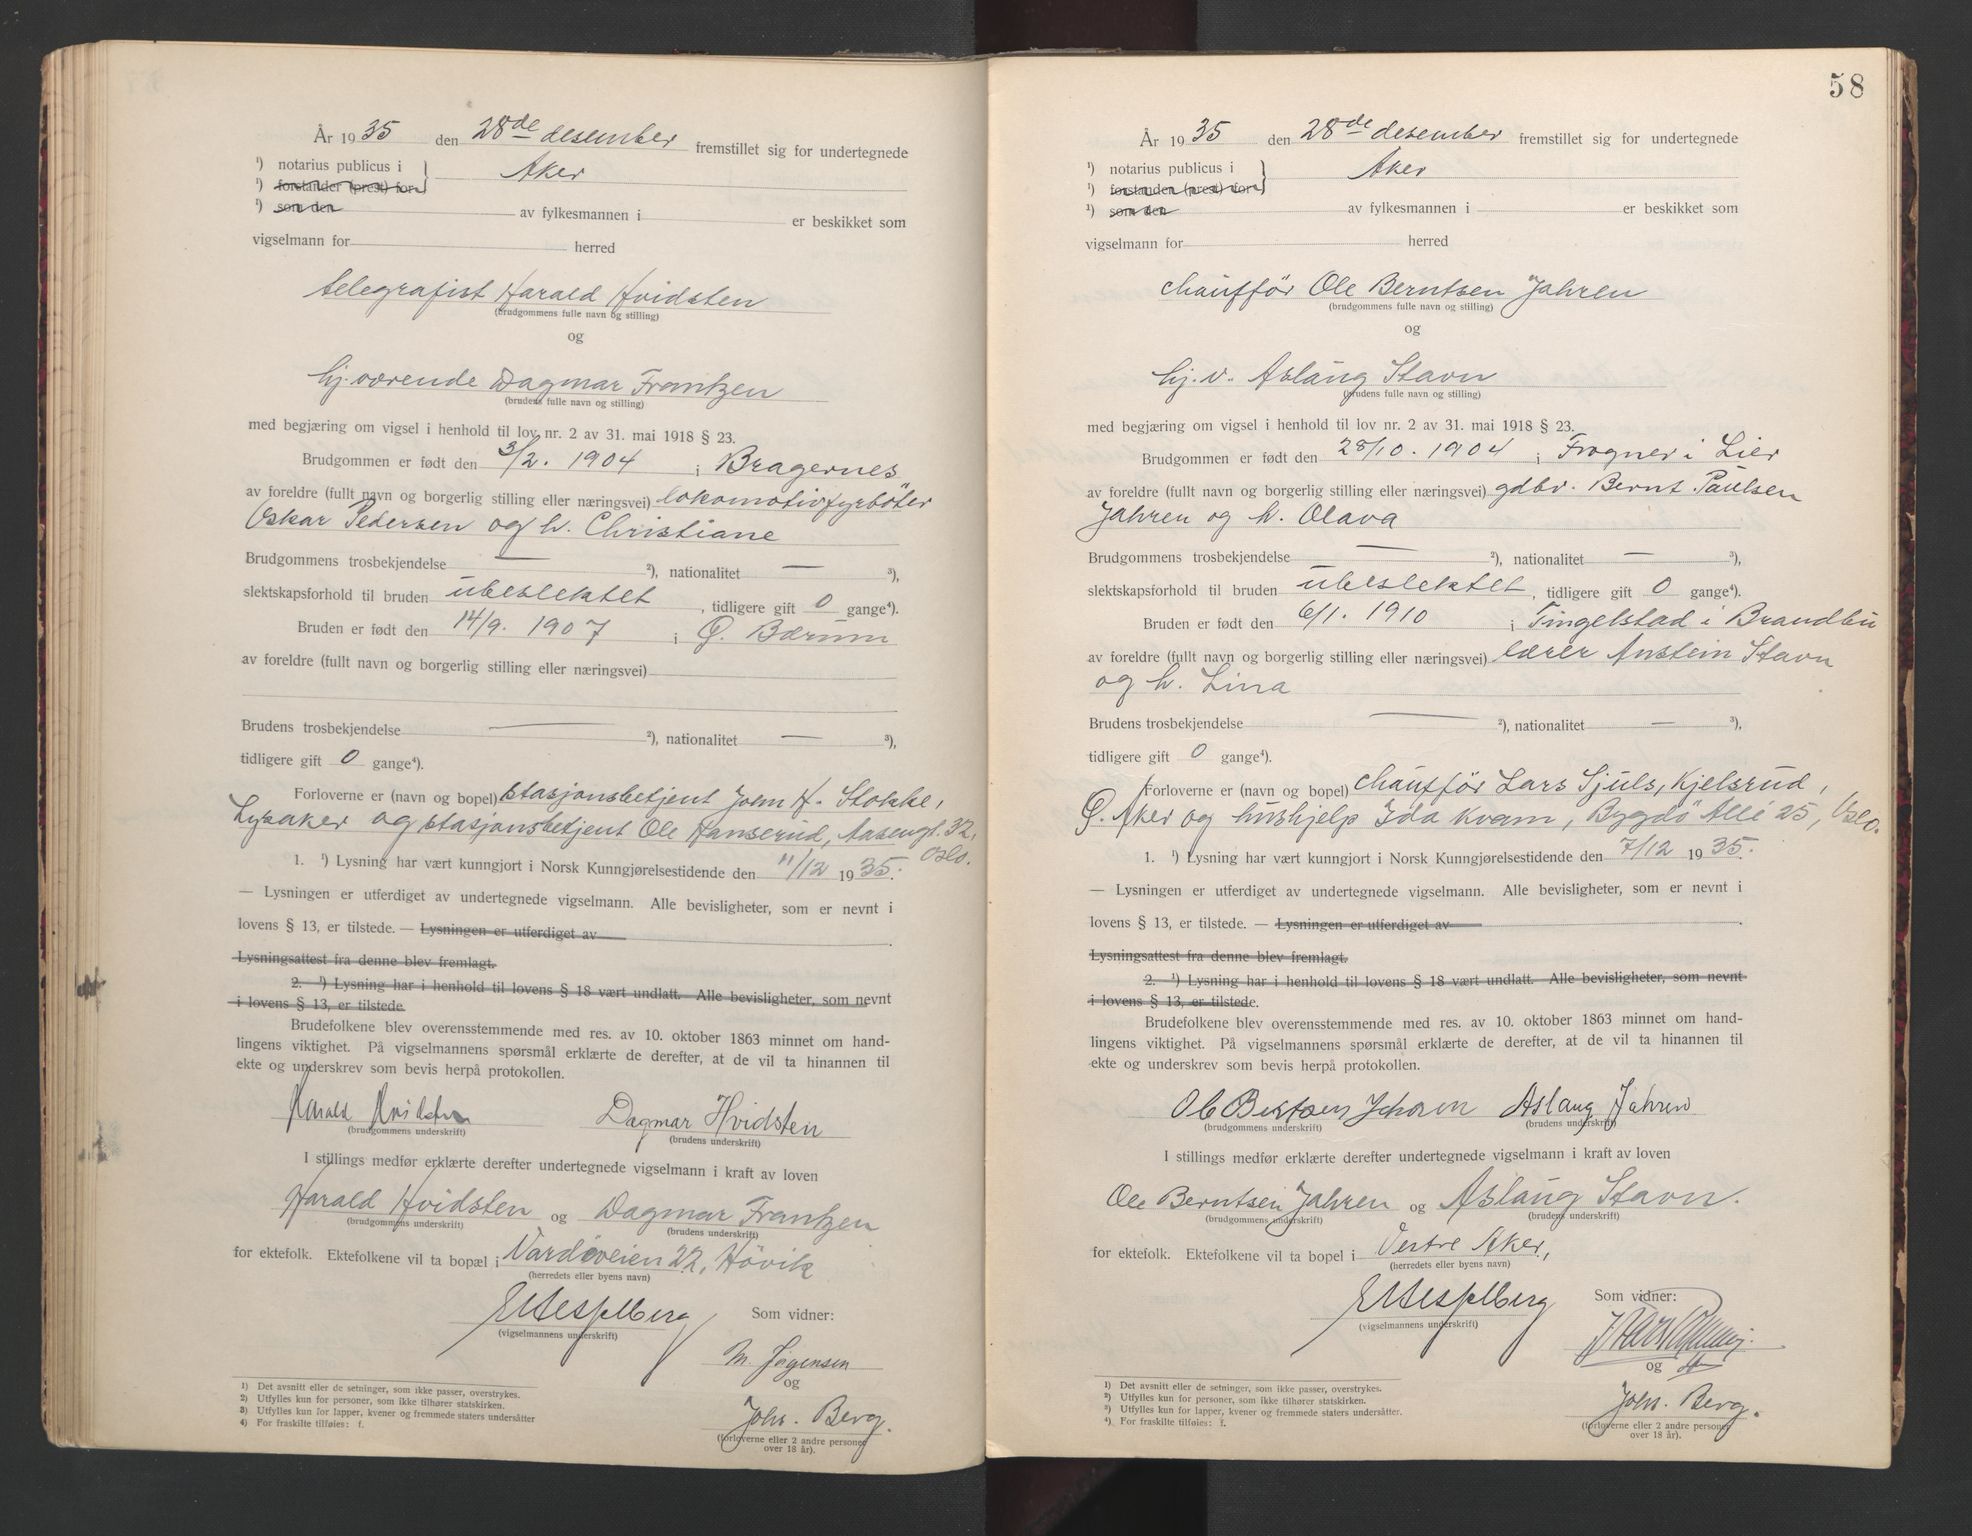 År 1935 den 28de desember fremstillet sig for undertegnede
¹) notarius publicus i } Aker
¹) forstander (prest) for
¹) som den av fylkesmannen i er beskikket som
vigselmann for herred
telegrafist Harald Hvidsten
(brudgommens fulle navn og stilling)
og
hj. værende Dagmar Frantzen
(brudens fulle navn og stilling)
med begjæring om vigsel i henhold til lov nr. 2 av 31. mai 1918 § 23.
Brudgommen er født den 3/2. 1904 i Bragernes
av foreldre (fullt navn og borgerlig stilling eller næringsvei) lokomotivfyrbøter
Oskar Pedersen og h. Christiane
Brudgommens trosbekjendelse — ²), nationalitet — ³),
slektskapsforhold til bruden ubeslektet, tidligere gift 0 gange⁴).
Bruden er født den 14/9. 1907 i Ø. Bærum
av foreldre (fullt navn og borgerlig stilling eller næringsvei)
Brudens trosbekjendelse — ²), nationalitet — ³),
tidligere gift 0 gange⁴).
Forloverne er (navn og bopel) stasjonsbetjent John H. Stokke,
Lysaker og stasjonsbetjent Ole Hanserud, Aasengt. 32,
Oslo.
1. ¹) Lysning har vært kunngjort i Norsk Kunngjørelsestidende den 11/12 1935.
— Lysningen er utferdiget av undertegnede vigselmann. Alle bevisligheter, som er nevnt i
lovens § 13, er tilstede. — Lysningen er utferdiget av
Lysningsattest fra denne blev fremlagt.
2. ¹) Lysning har i henhold til lovens § 18 vært undlatt. Alle bevisligheter, som nevnt
i lovens § 13, er tilstede
Brudefolkene blev overensstemmende med res. av 10. oktober 1863 minnet om hand-
lingens viktighet. På vigselmannens spørsmål erklærte de derefter, at de vil ta hinannen til
ekte og underskrev som bevis herpå protokollen.
Harald Hvidsten Dagmar Hvidsten
(brudgommens underskrift) (brudens underskrift)
I stillings medfør erklærte derefter undertegnede vigselmann i kraft av loven
Harald Hvidsten og Dagmar Frantzen
(brudgommens underskrift) (brudens underskrift)
for ektefolk. Ektefolkene vil ta bopæl i Vardöveien 22, Hövik
(herredets eller byens navn)
(vigselmannens underskrift)
Som vidner:
M. Jørgensen
og
Johs. Berg.
(forloverne eller 2 andre personer
over 18 år).
1) Det avsnitt eller de setninger, som ikke passer, overstrykes.
2) Utfylles kun for personer, som ikke tilhører statskirken.
3) Utfylles kun for lapper, kvener og fremmede staters undersåtter
4) For fraskilte tilføies: f.
58
År 1935 den 28de desember fremstillet sig for undertegnede
¹) notarius publicus i } Aker
¹) forstanden (prest) for
¹) som den av fylkesmannen i er beskikket som
vigselmann for herred
chauffør Ole Berntsen Jahren
(brudgommens fulle navn og stilling)
og
hj. v. Aslaug Stavn
(brudens fulle navn og stilling)
med begjæring om vigsel i henhold til lov nr. 2 av 31. mai 1918 § 23.
Brudgommen er født den 28/10. 1904 i Frogner i Lier
av foreldre (fullt navn og borgerlig stilling eller næringsvei) gdbr. Bernt Paulsen
Jahren og h. Olava
Brudgommens trosbekjendelse — ²), nationalitet — ³),
slektskapsforhold til bruden ubeslektet, tidligere gift 0 gange⁴).
Bruden er født den 6/1. 1910 i Tingelstad i Brandbu
av foreldre (fullt navn og borgerlig stilling eller næringsvei) lærer Anstein Stavn
og h. Lina
Brudens trosbekjendelse — ²), nationalitet — ³),
tidligere gift 0 gange⁴).
Forloverne er (navn og bopel) chauffør Lars Sjuls, Kjelsrud,
Ø. Aker og hushjelp Ida Kvam, Bygdö Allé 25, Oslo.
1. ¹) Lysning har vært kunngjort i Norsk Kunngjørelsestidende den 7/12 1935.
— Lysningen er utferdiget av undertegnede vigselmann. Alle bevisligheter, som er nevnt i
lovens § 13, er tilstede. — Lysningen er utferdiget av
Lysningsattest fra denne blev fremlagt.
2. ¹) Lysning har i henhold til lovens § 18 vært undlatt. Alle bevisligheter, som nevnt
i lovens § 13, er tilstede.
Brudefolkene blev overensstemmende med res. av 10. oktober 1863 minnet om hand-
lingens viktighet. På vigselmannens spørsmål erklærte de derefter, at de vil ta hinannen til
ekte og underskrev som bevis herpå protokollen.
Ole Berntsen Jahren Aslaug Jahren
(brudgommens underskrift) (brudens underskrift)
I stillings medfør erklærte derefter undertegnede vigselmann i kraft av loven
Ole Berntsen Jahren og Aslaug Stavn.
(brudgommens underskrift) (brudens underskrift)
for ektefolk. Ektefolkene vil ta bopel i Vestre Aker,
(herredets eller byens navn)
(vigselmannens underskrift)
Som vidner:
og
Johs. Berg.
(forloverne eller 2 andre personer
over 18 år).
¹) Det avsnitt eller de setninger, som ikke passer, overstrykes.
²) Utfylles kun for personer, som ikke tilhører statskirken.
³) Utfylles kun for lapper, kvener og fremmede staters undersåtter.
⁴) For fraskilte tilføies: f.